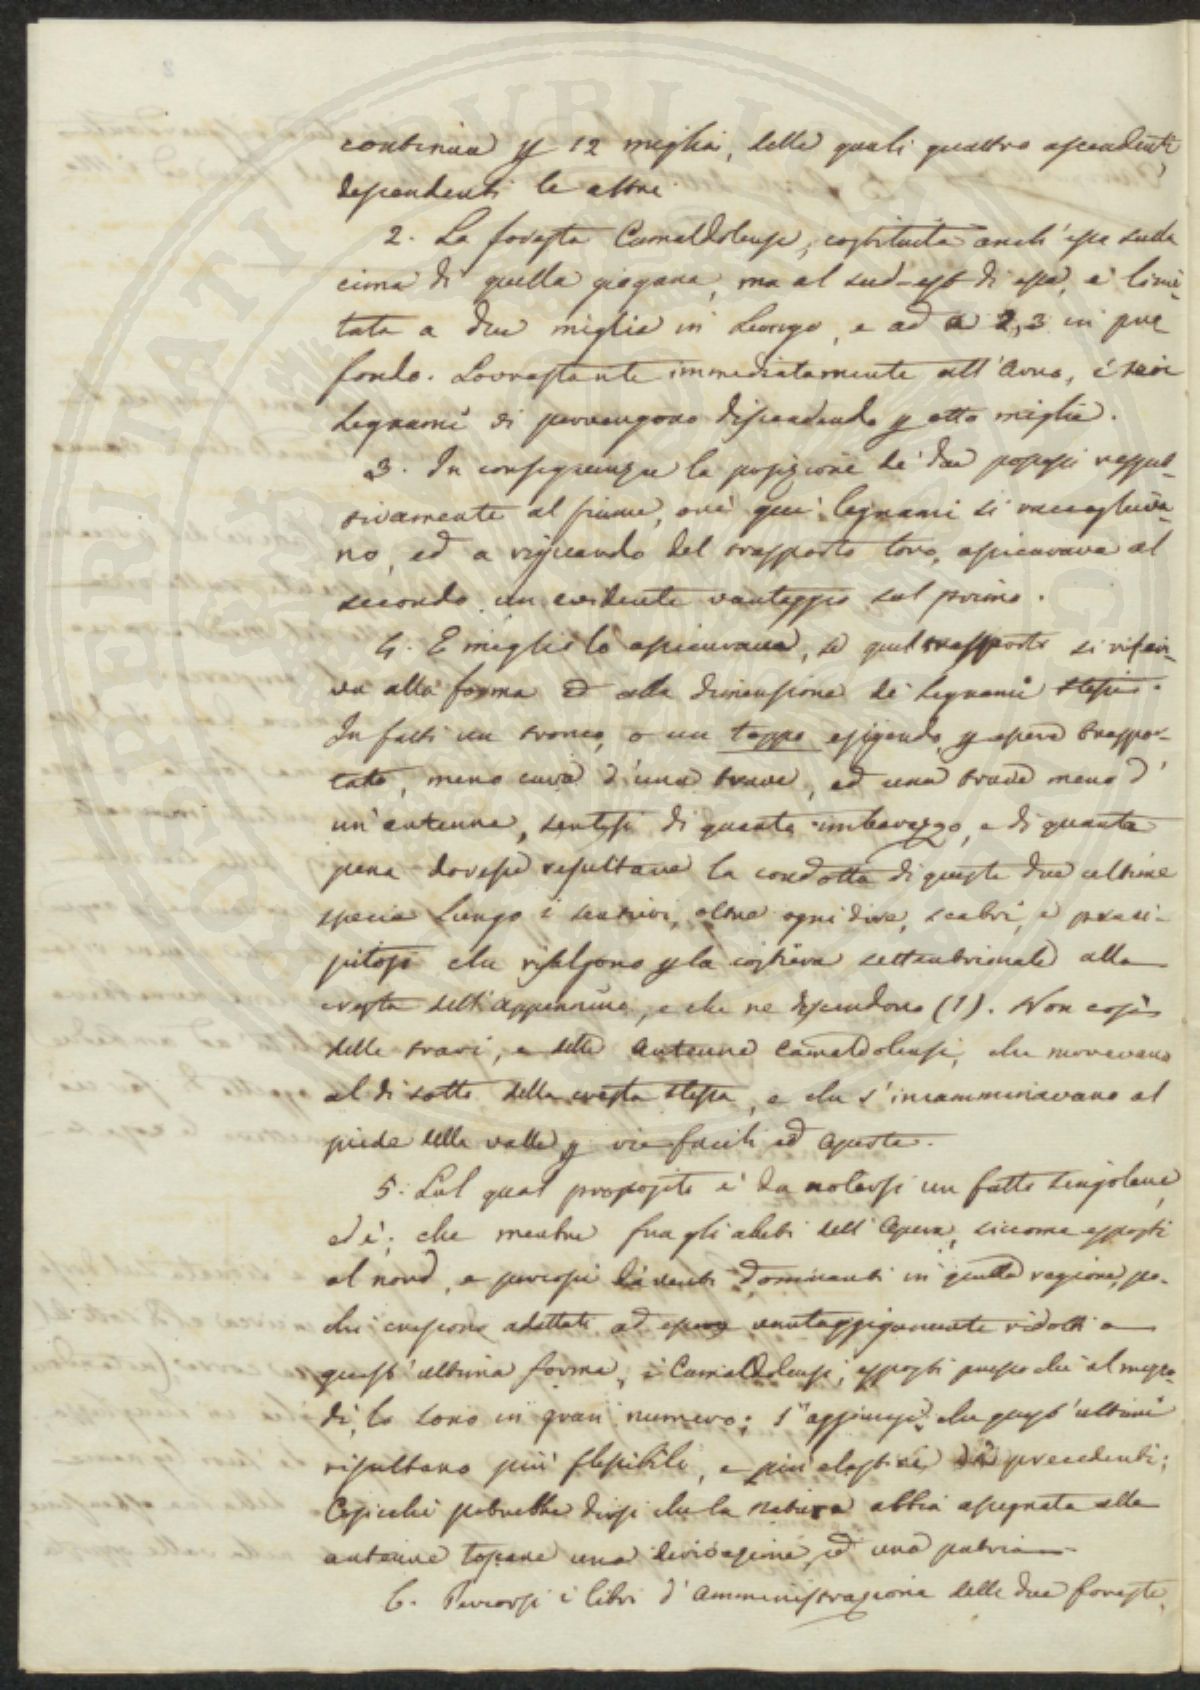 continua p 12 miglia, delle quali quattro ascendenti,
descendenti le altre.
2. La foresta Camaldolense, costituita anch'essa sulla
cima di quella giogana, ma al sud-est di essa, è limi-
tata a due miglia in lungo, e ad a 2, 3 in pro
fondo. Sovrastante immediatamente all'Arno, i suoi
legnami vi pervengono discendendo p otto miglia.
3. In conseguenza la posizione de' due possessi respet-
tivamente al fiume, ov'è que' legnami si raccoglieva-
no, ed a riguardo del trasporto loro, assicurava al
secondo un evidente vantaggio sul primo.
4. E meglio lo assicurava, se quel trasporto si riferi-
va alla forma ed alla dimensione de' legnami stessi.
In fatti un tronco, o un toppo esigendo, p essere traspor-
tato, meno cura d'una trave, ed una trave meno d'
un'antenna, sentesi di quanto imbarazzo, e di quanta
pena dovesse resultare la condotta di queste due ultime
specie lungo i sentieri, oltre ogni dire, scabri, e preci-
pitosi che risalgono p la costiera settentrionale alla
cresta dell'Appennino, e che ne discendono (1). Non così
delle travi, e delle antenne Camaldolensi, che movevano
al di sotto della cresta stessa, e che s'incamminavano al
piede della valle p vie facili ed aperte.
5. Sul qual proposito è da notarsi un fatto singolare,
ed è; che mentre fra gli abeti dell'Opera, siccome esposti
al nord, e percossi da' venti dominanti in quella regione, po-
chi crescono adattati ad essere vantaggiosamente ridotti a
quest'ultima forma, i Camaldolensi, esposti pressoché al mezzo-
dì, lo sono in gran numero; s'aggiunge, che quest'ultimi
risultano più flessibili, e più elastici de' precedenti;
Cosicchè potrebbe dirsi che la natura abbia assegnata alle
antenne toscane una divisione, ed una patria.
6. Percorsi i libri d'amministrazione delle due foreste,